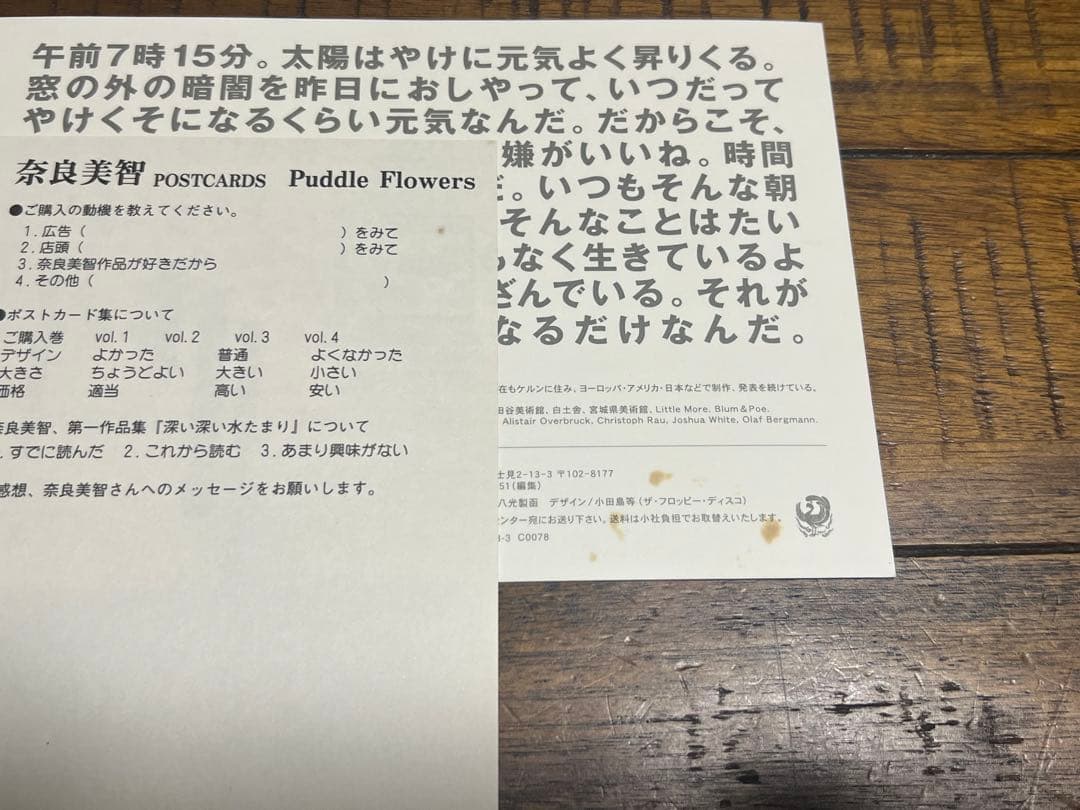 午前7時15分。太陽はやけに元気よく昇りくる。
窓の外の暗闇を昨日におしやって、いつだって
やけくそになるくらい元気なんだ。だからこそ、
嫌がいいね。時間
。いつもそんな朝
そんなことはたい
なく生きているよ
んでいる。それが
なるだけなんだ。
在もケルンに住み、ヨーロッパ・アメリカ・日本などで制作、発表を続けている。
田谷美術館、白土舎、宮城県美術館、Little More, Blum & Poe.
Alistair Overbruck, Christoph Rau, Joshua White, Olaf Bergmann.
士見2-13-3 〒102-8177
51(編集)
八光製函 デザイン/小田島等(ザ・フロッピー・ディスコ)
ンター宛にお送り下さい。送料は小社負担でお取替えいたします。
3-3 C0078
奈良美智 POSTCARDS Puddle Flowers
●ご購入の動機を教えてください。
1. 広告( )をみて
2. 店頭( )をみて
3. 奈良美智作品が好きだから
4. その他( )
●ポストカード集について
ご購入巻 vol. 1 vol. 2 vol. 3 vol. 4
デザイン よかった 普通 よくなかった
大きさ ちょうどよい 大きい 小さい
価格 適当 高い 安い
奈良美智、第一作品集『深い深い水たまり』について
. すでに読んだ 2. これから読む 3. あまり興味がない
感想、奈良美智さんへのメッセージをお願いします。